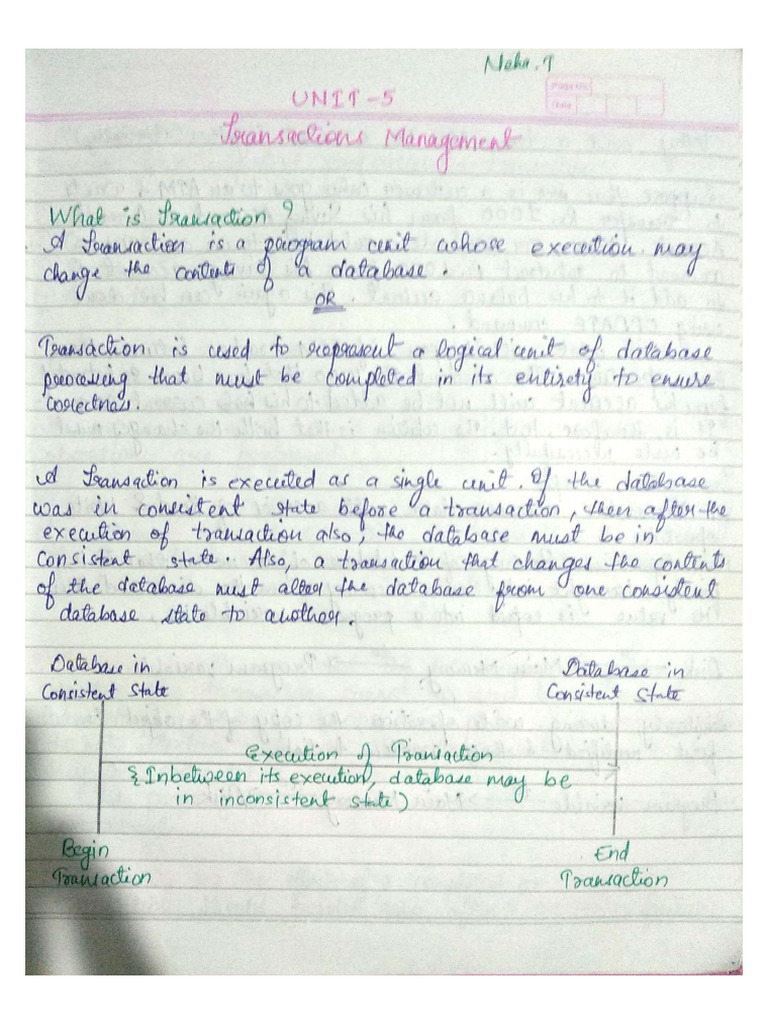 Neha.T
UNIT-5
Page No.
Date
Transactions Management
What is Transaction?
A Transaction is a program unit whose execution may
change the contents of a database.
OR
Transaction is used to represent a logical unit of database
processing that must be completed in its entirety to ensure
correctness.
A Transaction is executed as a single unit. If the database
was in consistent state before a transaction, then after the
execution of transaction also, the database must be in
consistent state. Also, a transaction that changes the contents
of the database must alter the database from one consistent
database state to another.
Database in
Consistent State
Database in
Consistent State
Execution of Transaction
{Inbetween its execution, database may be
in inconsistent state)
Begin
Transaction
End
Transaction